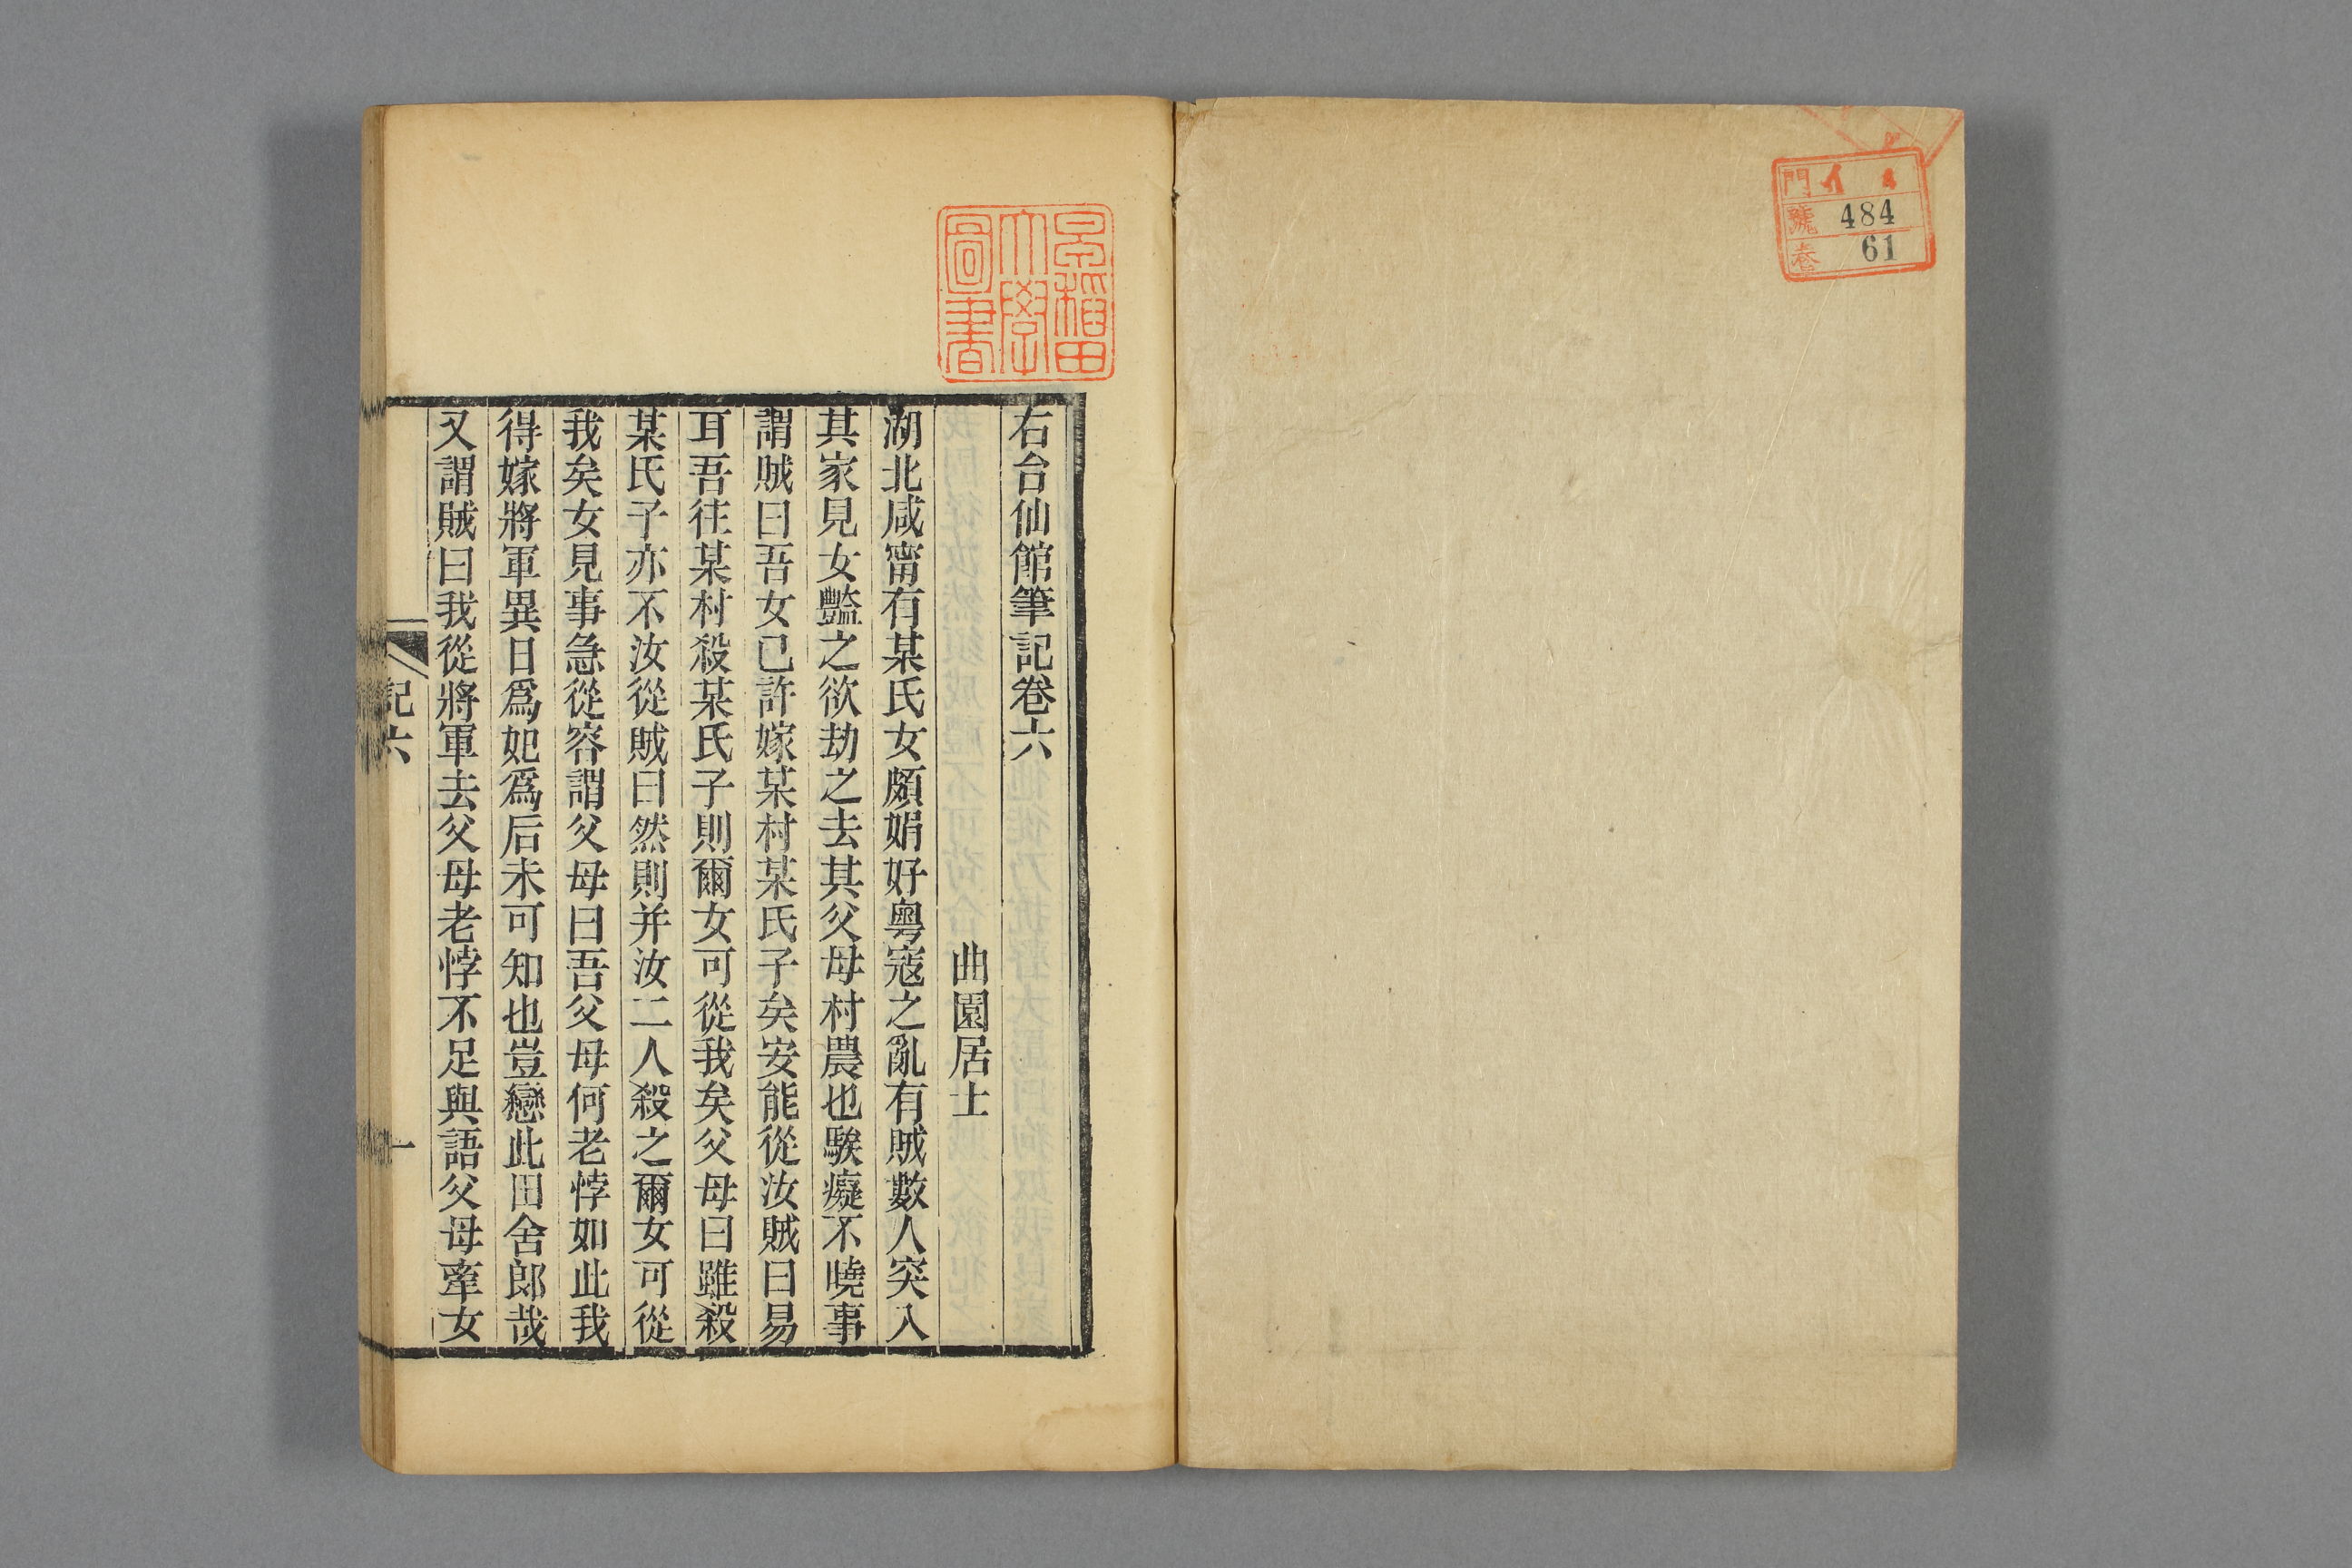 門 イ 4
號 484
卷 61
早稲田
大學
圖書
右台仙館筆記卷六
曲園居士
湖北咸甯有某氏女頗娟好粵寇之亂有賊數人突入
其家見女豔之欲劫之去其父母村農也騃癡不曉事
謂賊曰吾女已許嫁某村某氏子矣安能從汝賊曰易
耳吾往某村殺某氏子則爾女可從我矣父母曰雖殺
某氏子亦不汝從賊曰然則并汝二人殺之爾女可從
我矣女見事急從容謂父母曰吾父母何老悖如此我
得嫁將軍異日爲妃爲后未可知也豈戀此田舍郎哉
又謂賊曰我從將軍去父母老悖不足與語父母牽女
記六
一